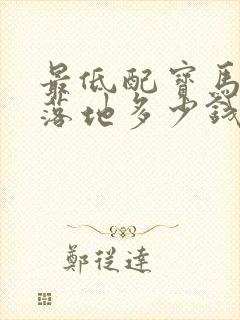 最低配寶馬
落地多少錢
鄭從達